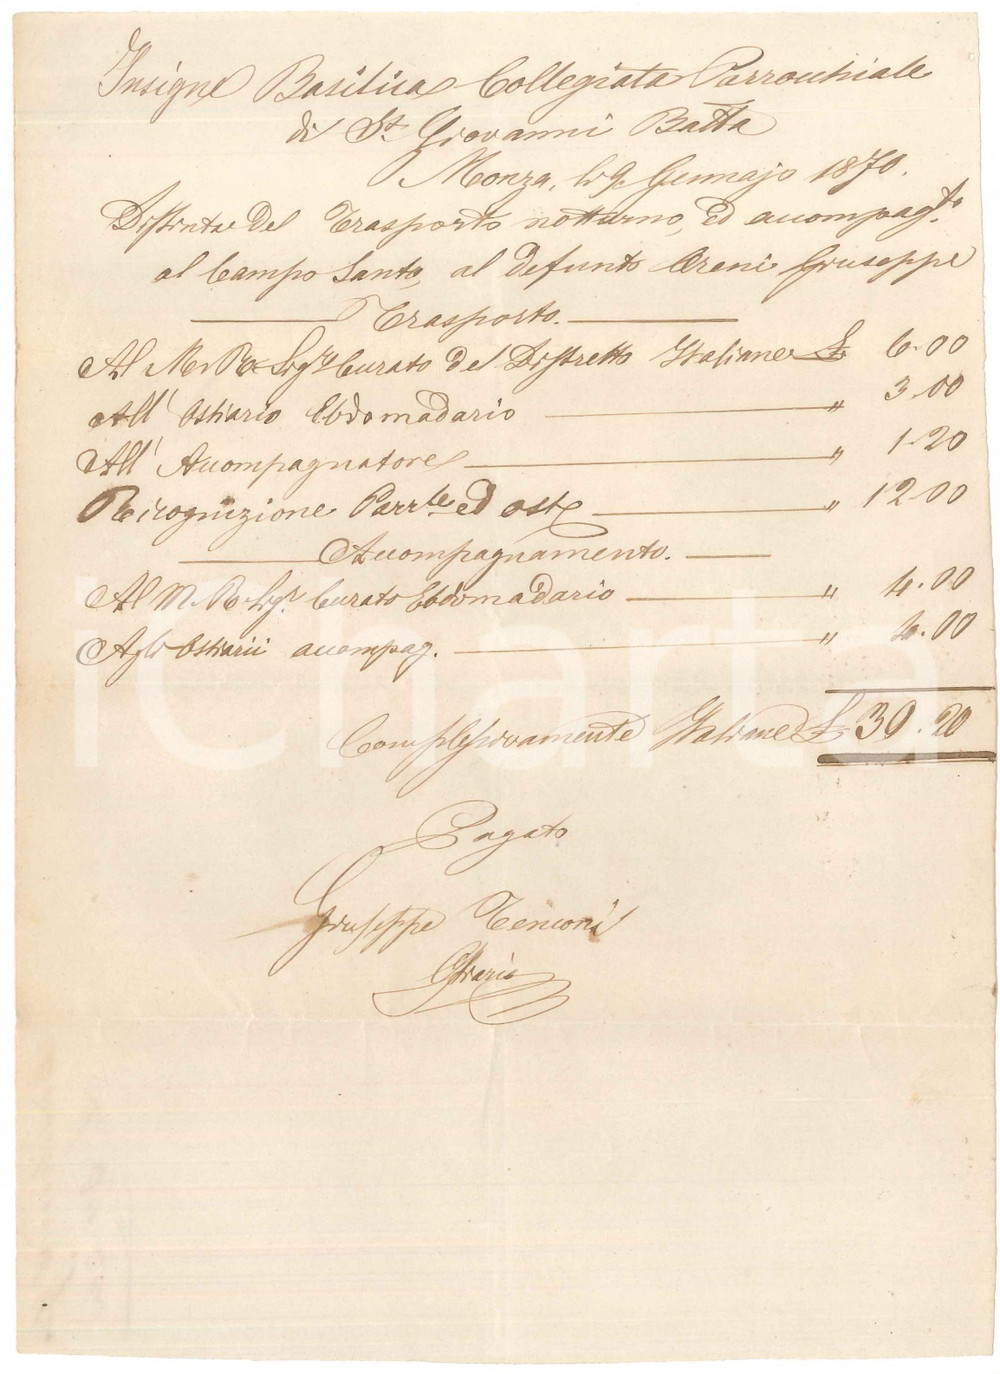 Insigne Basilica Collegiata Parrocchiale
di St. Giovanni Batta
Monza, li 9 Gennajo 1870.
Distinta del Trasporto notturno, ed accompag.to
al Campo Santo, al defunto Oreni Giuseppe
Trasporto.
Al M. R. Sigr Curato del Distretto Italiane £ 6.00
All' Ostiario Ebdomadario " 3.00
All' Accompagnatore " 1.20
Ricognizione Parrle ed ost. " 12.00
Accompagnamento.
Al M. R. Sigr. Curato Ebdomadario " 4.00
Agli Ostiarii accompag. " 4.00
Complessivamente Italiane £ 30.20
Pagato
Giuseppe Tenconi
Ostiario
iCharta